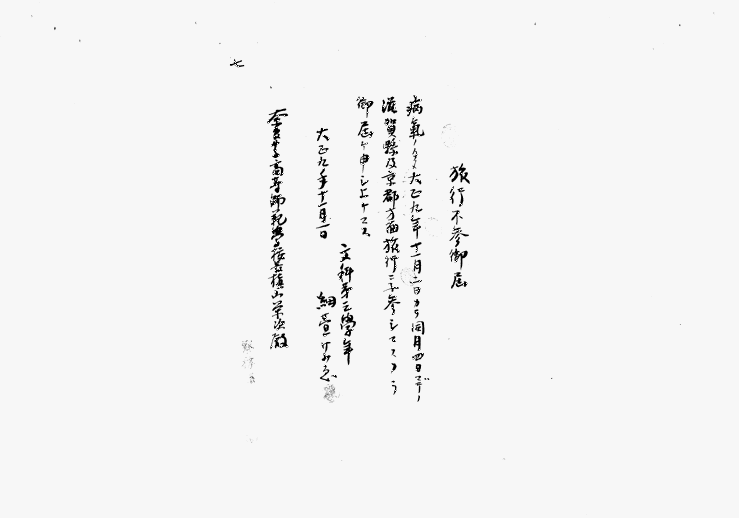 旅行不参御届
病氣ノ為大正九年十一月二日カラ同月四日マデノ
滋賀縣及京都方面旅行ニ不参シマスカラ
御届ケ申シ上ケマス
大正九年十一月一日
文科第三學年
細
奈良女子高等師範學校長槇山栄次殿
七